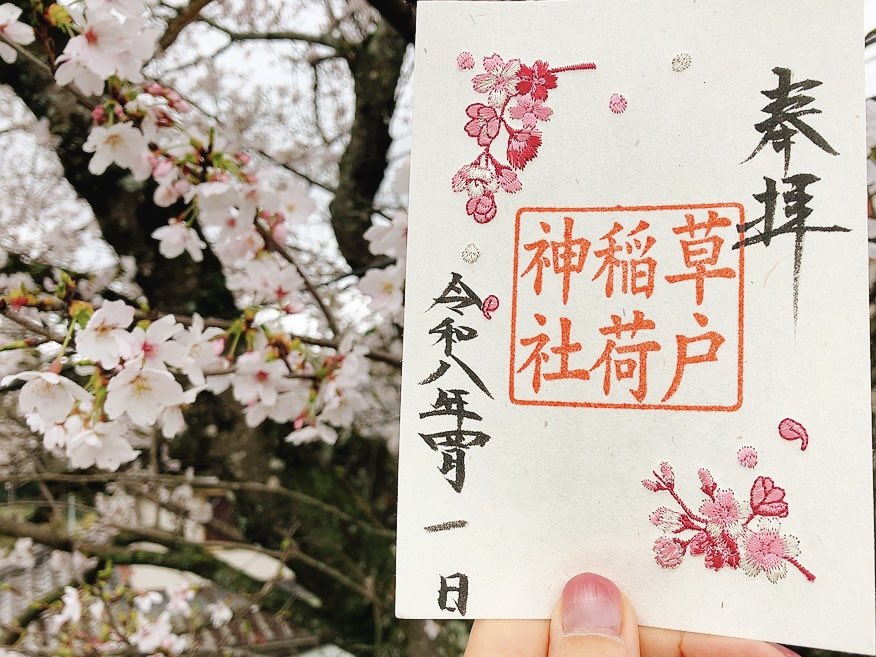 奉拝
草戸
稲荷
神社
令和八年四月一日